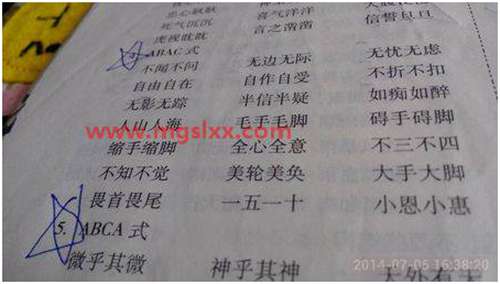 忠心耿耿
死气沉沉 喜气洋洋 信誓旦旦
虎视眈眈 言之凿凿
ABAC 式
不闻不问 无边无际 无忧无虑
自由自在 自作自受 不折不扣
无影无踪 半信半疑 如痴如醉
人山人海 毛手毛脚 碍手碍脚
www.mgslxx.com
缩手缩脚 全心全意 不三不四
不知不觉 美轮美奂 大手大脚
畏首畏尾 一五一十 小恩小惠
5. ABCA 式
微乎其微 神乎其神 天外有天
2014-07-05 16:38:20